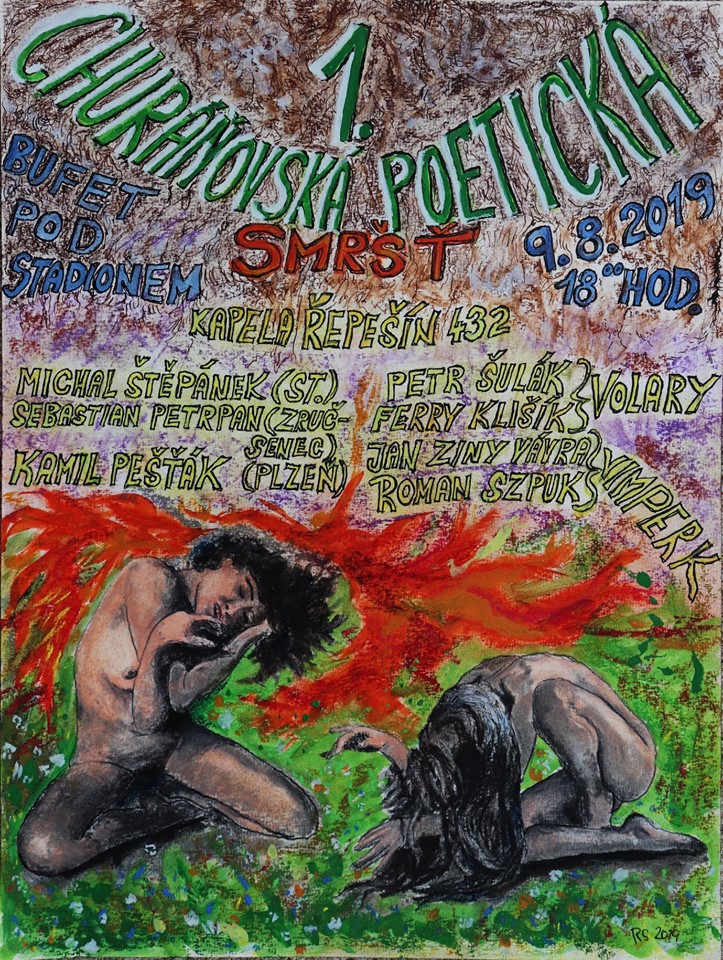 1.
CHURÁŇOVSKÁ POETICKÁ
SMRŠŤ
BUFET
POD
STADIONEM
9.8.2019
18⁰⁰ HOD.
KAPELA ŘEPEŠÍN 432
MICHAL ŠTĚPÁNEK (ST.)
SEBASTIAN PETRPAN (ZRUČ-
SENEC)
KAMIL PEŠŤÁK (PLZEŇ)
PETR ŠULÁK
FERRY KLIŠÍK
VOLARY
JAN ZINY VÁVRA
ROMAN SZPUK
VIMPERK
RS 2019